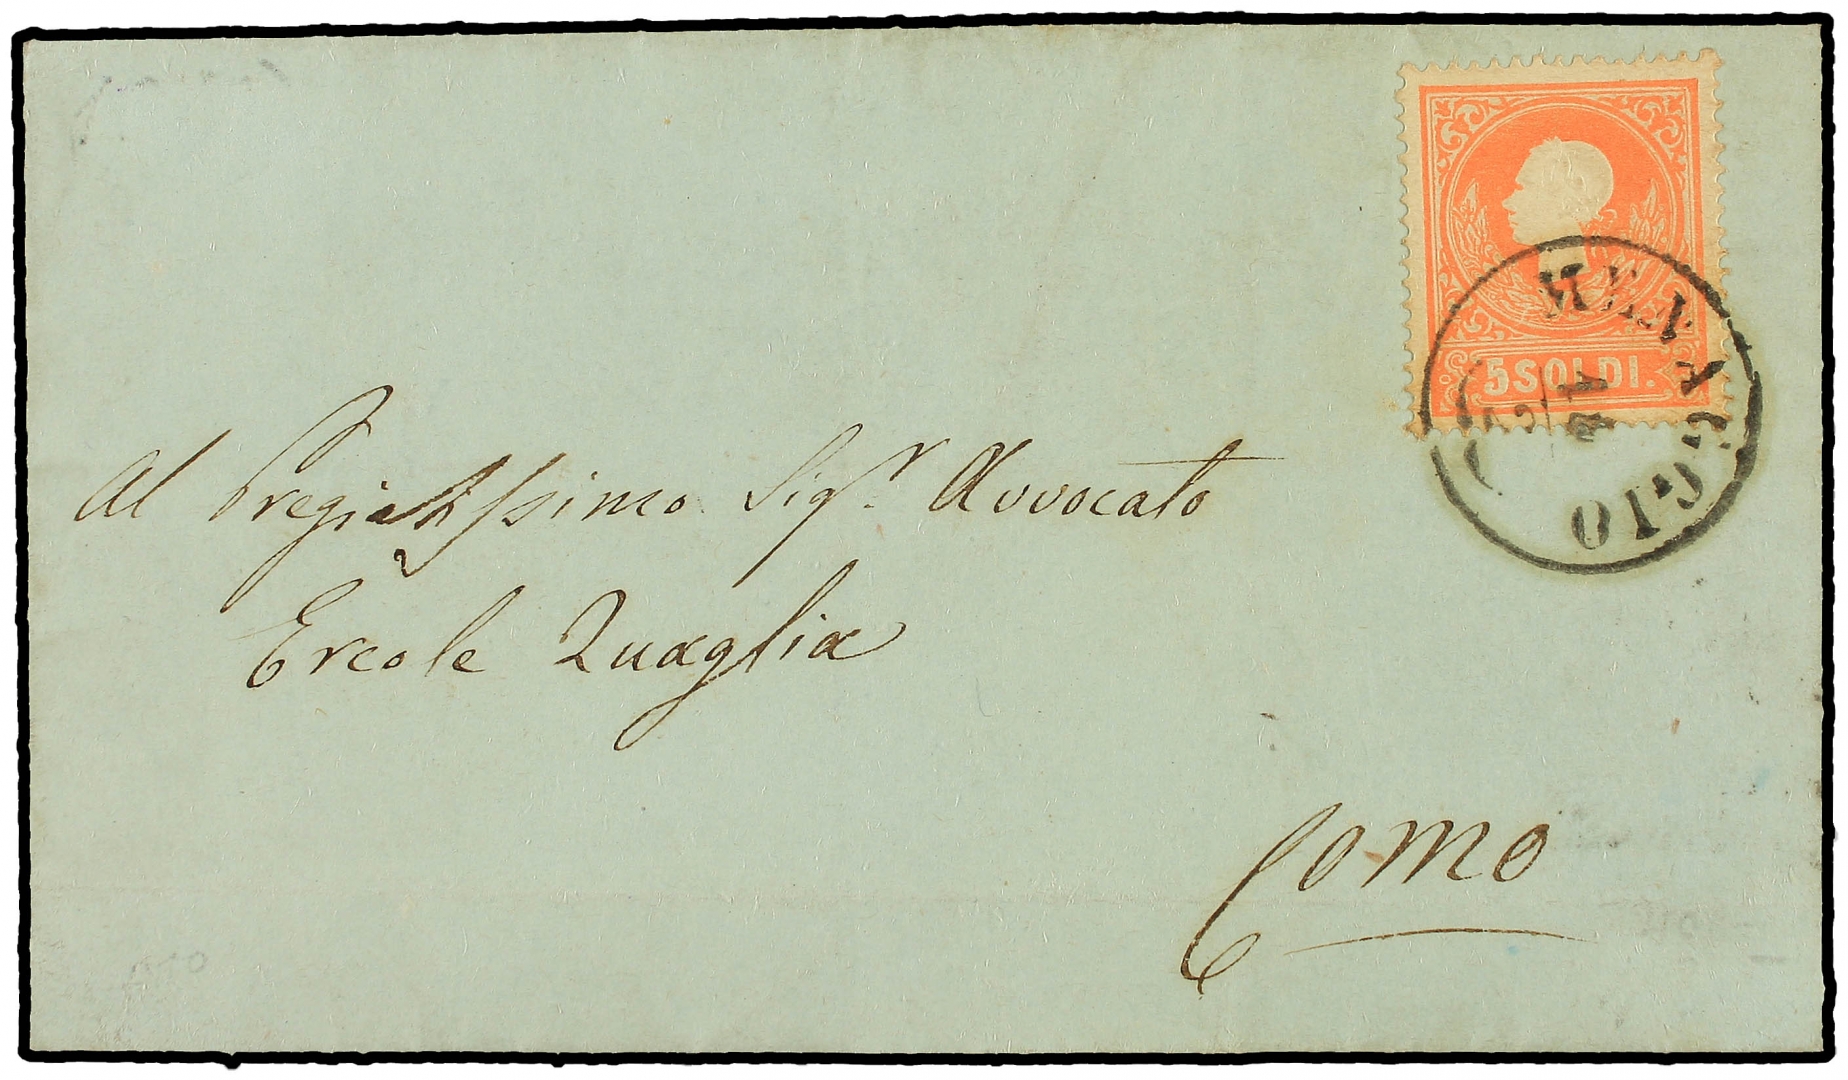 5 SOLDI.
MENAGGIO
Al Pregiatissimo Sigr. Avvocato
Ercole Quaglia
Como